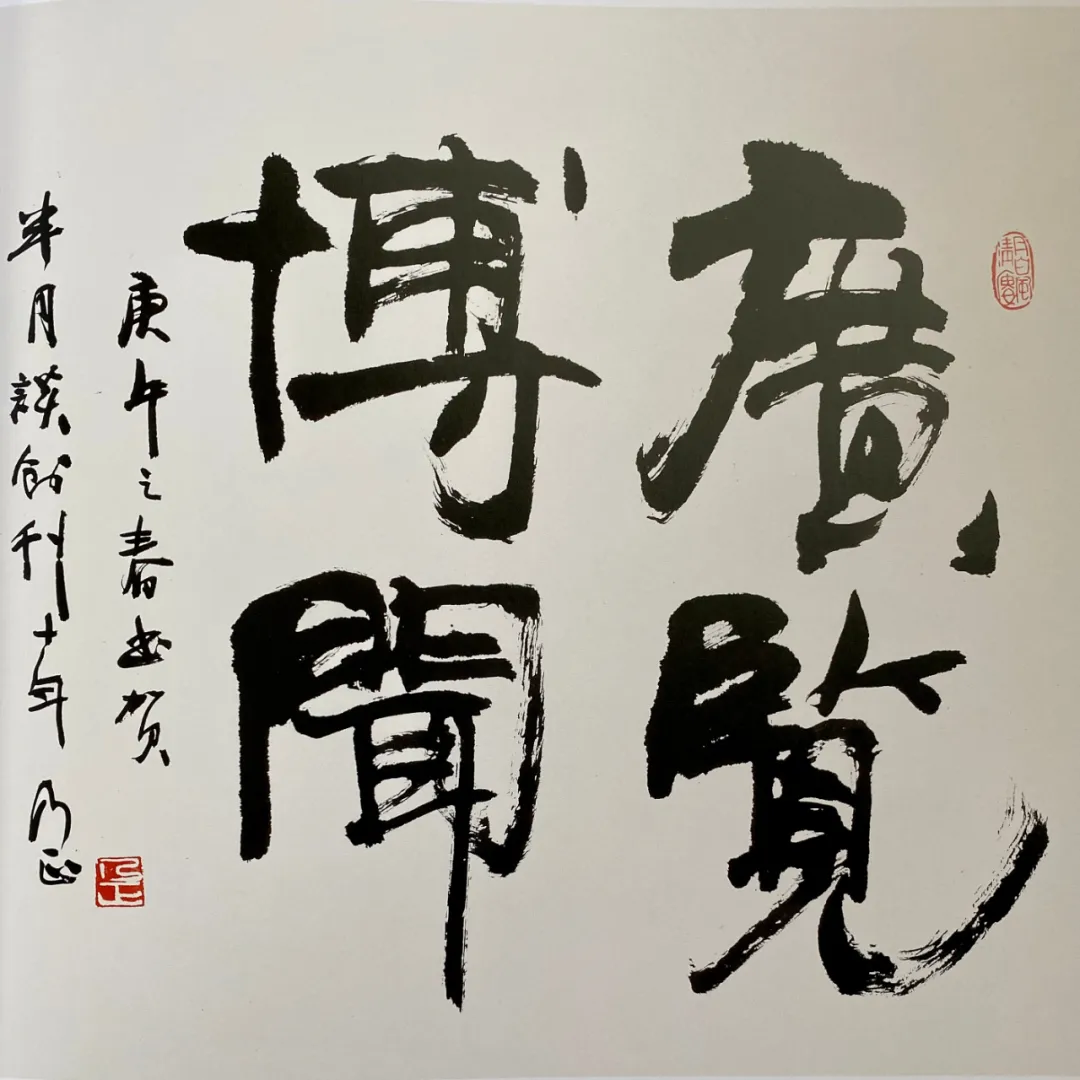 廣覽
博聞
庚午之春书贺
半月談創刊十年 乃正